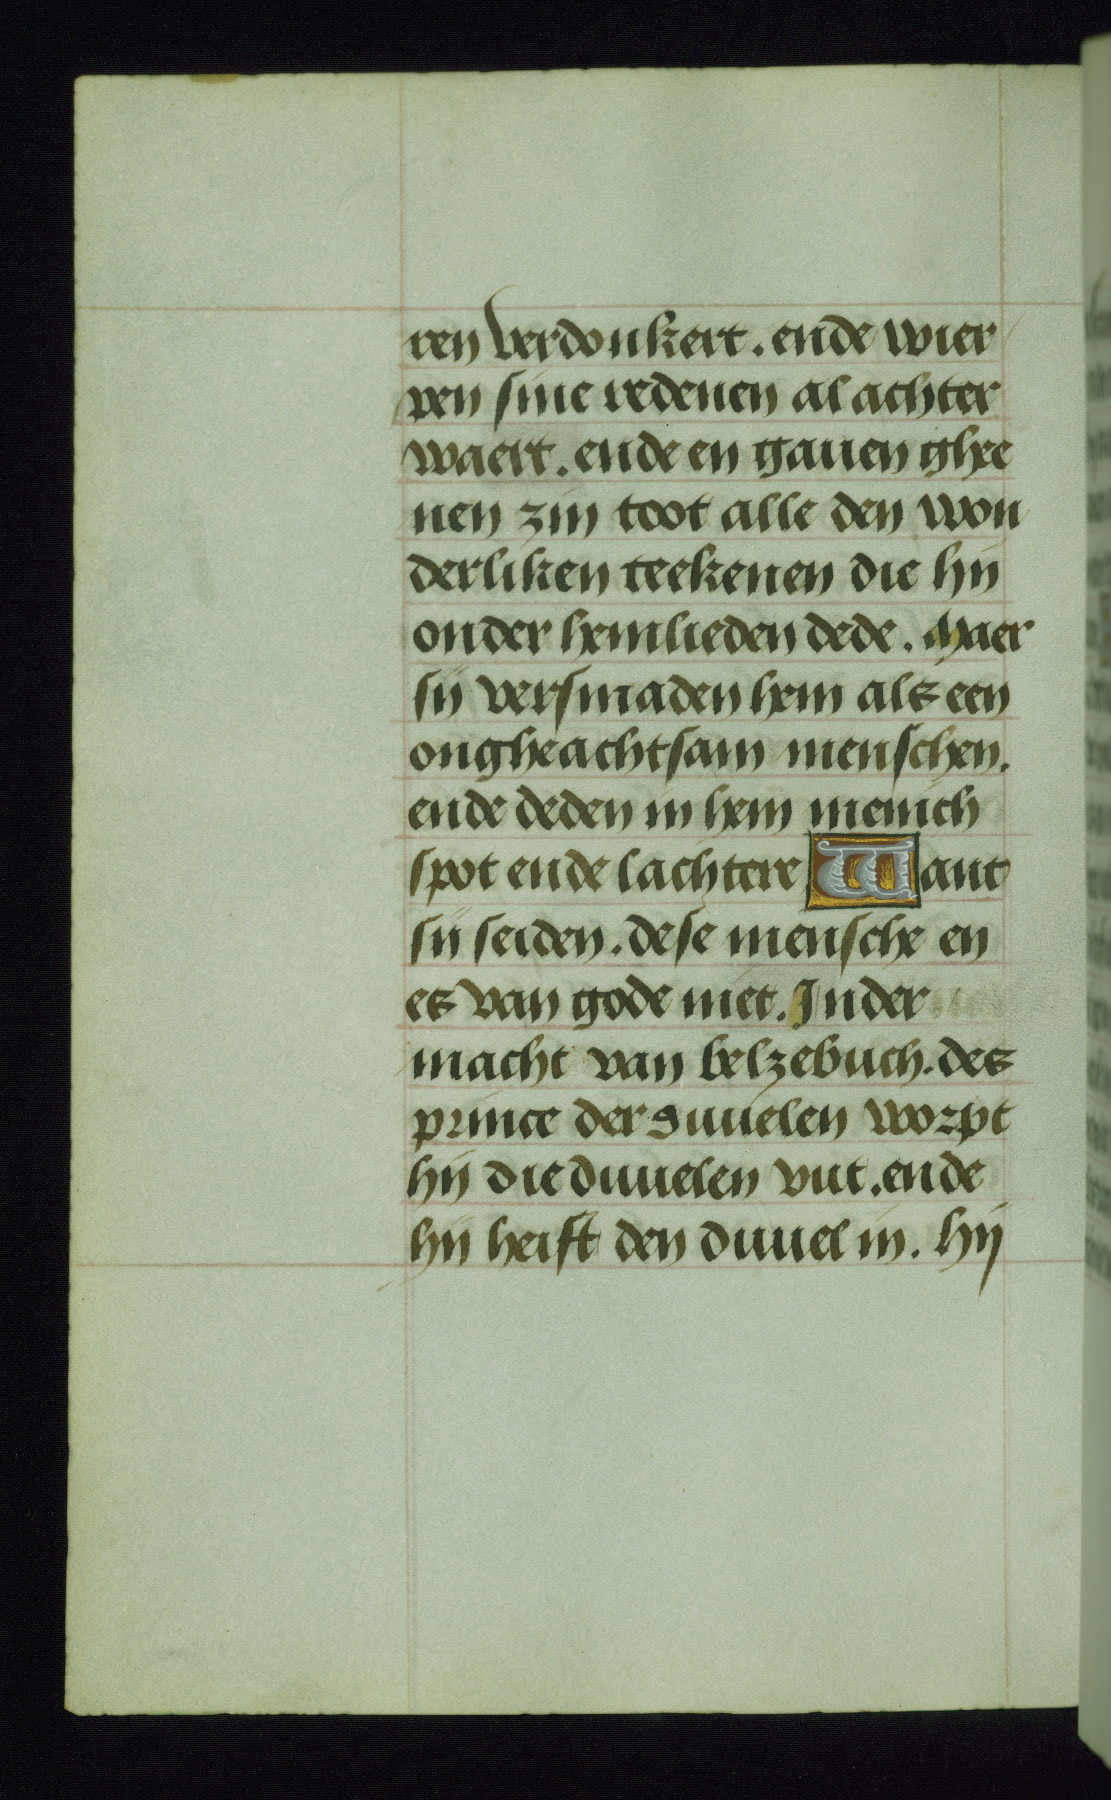 ren verdonkert. ende wier
pen sine redenen al achter
waert. ende en gauen ghee
nen zin toot alle den won
derliken teekenen die hij
onder hemlieden dede. Maer
sij versmaden hem als een
ongheachtsam menschen.
ende deden in hem menich
spot ende lachtere Want
sij seiden. dese mensche en
es van gode niet. In der
macht van belzebuch. des
prince der duuelen worpt
hij die duuelen vut. ende
hij heift den duuel in. hij